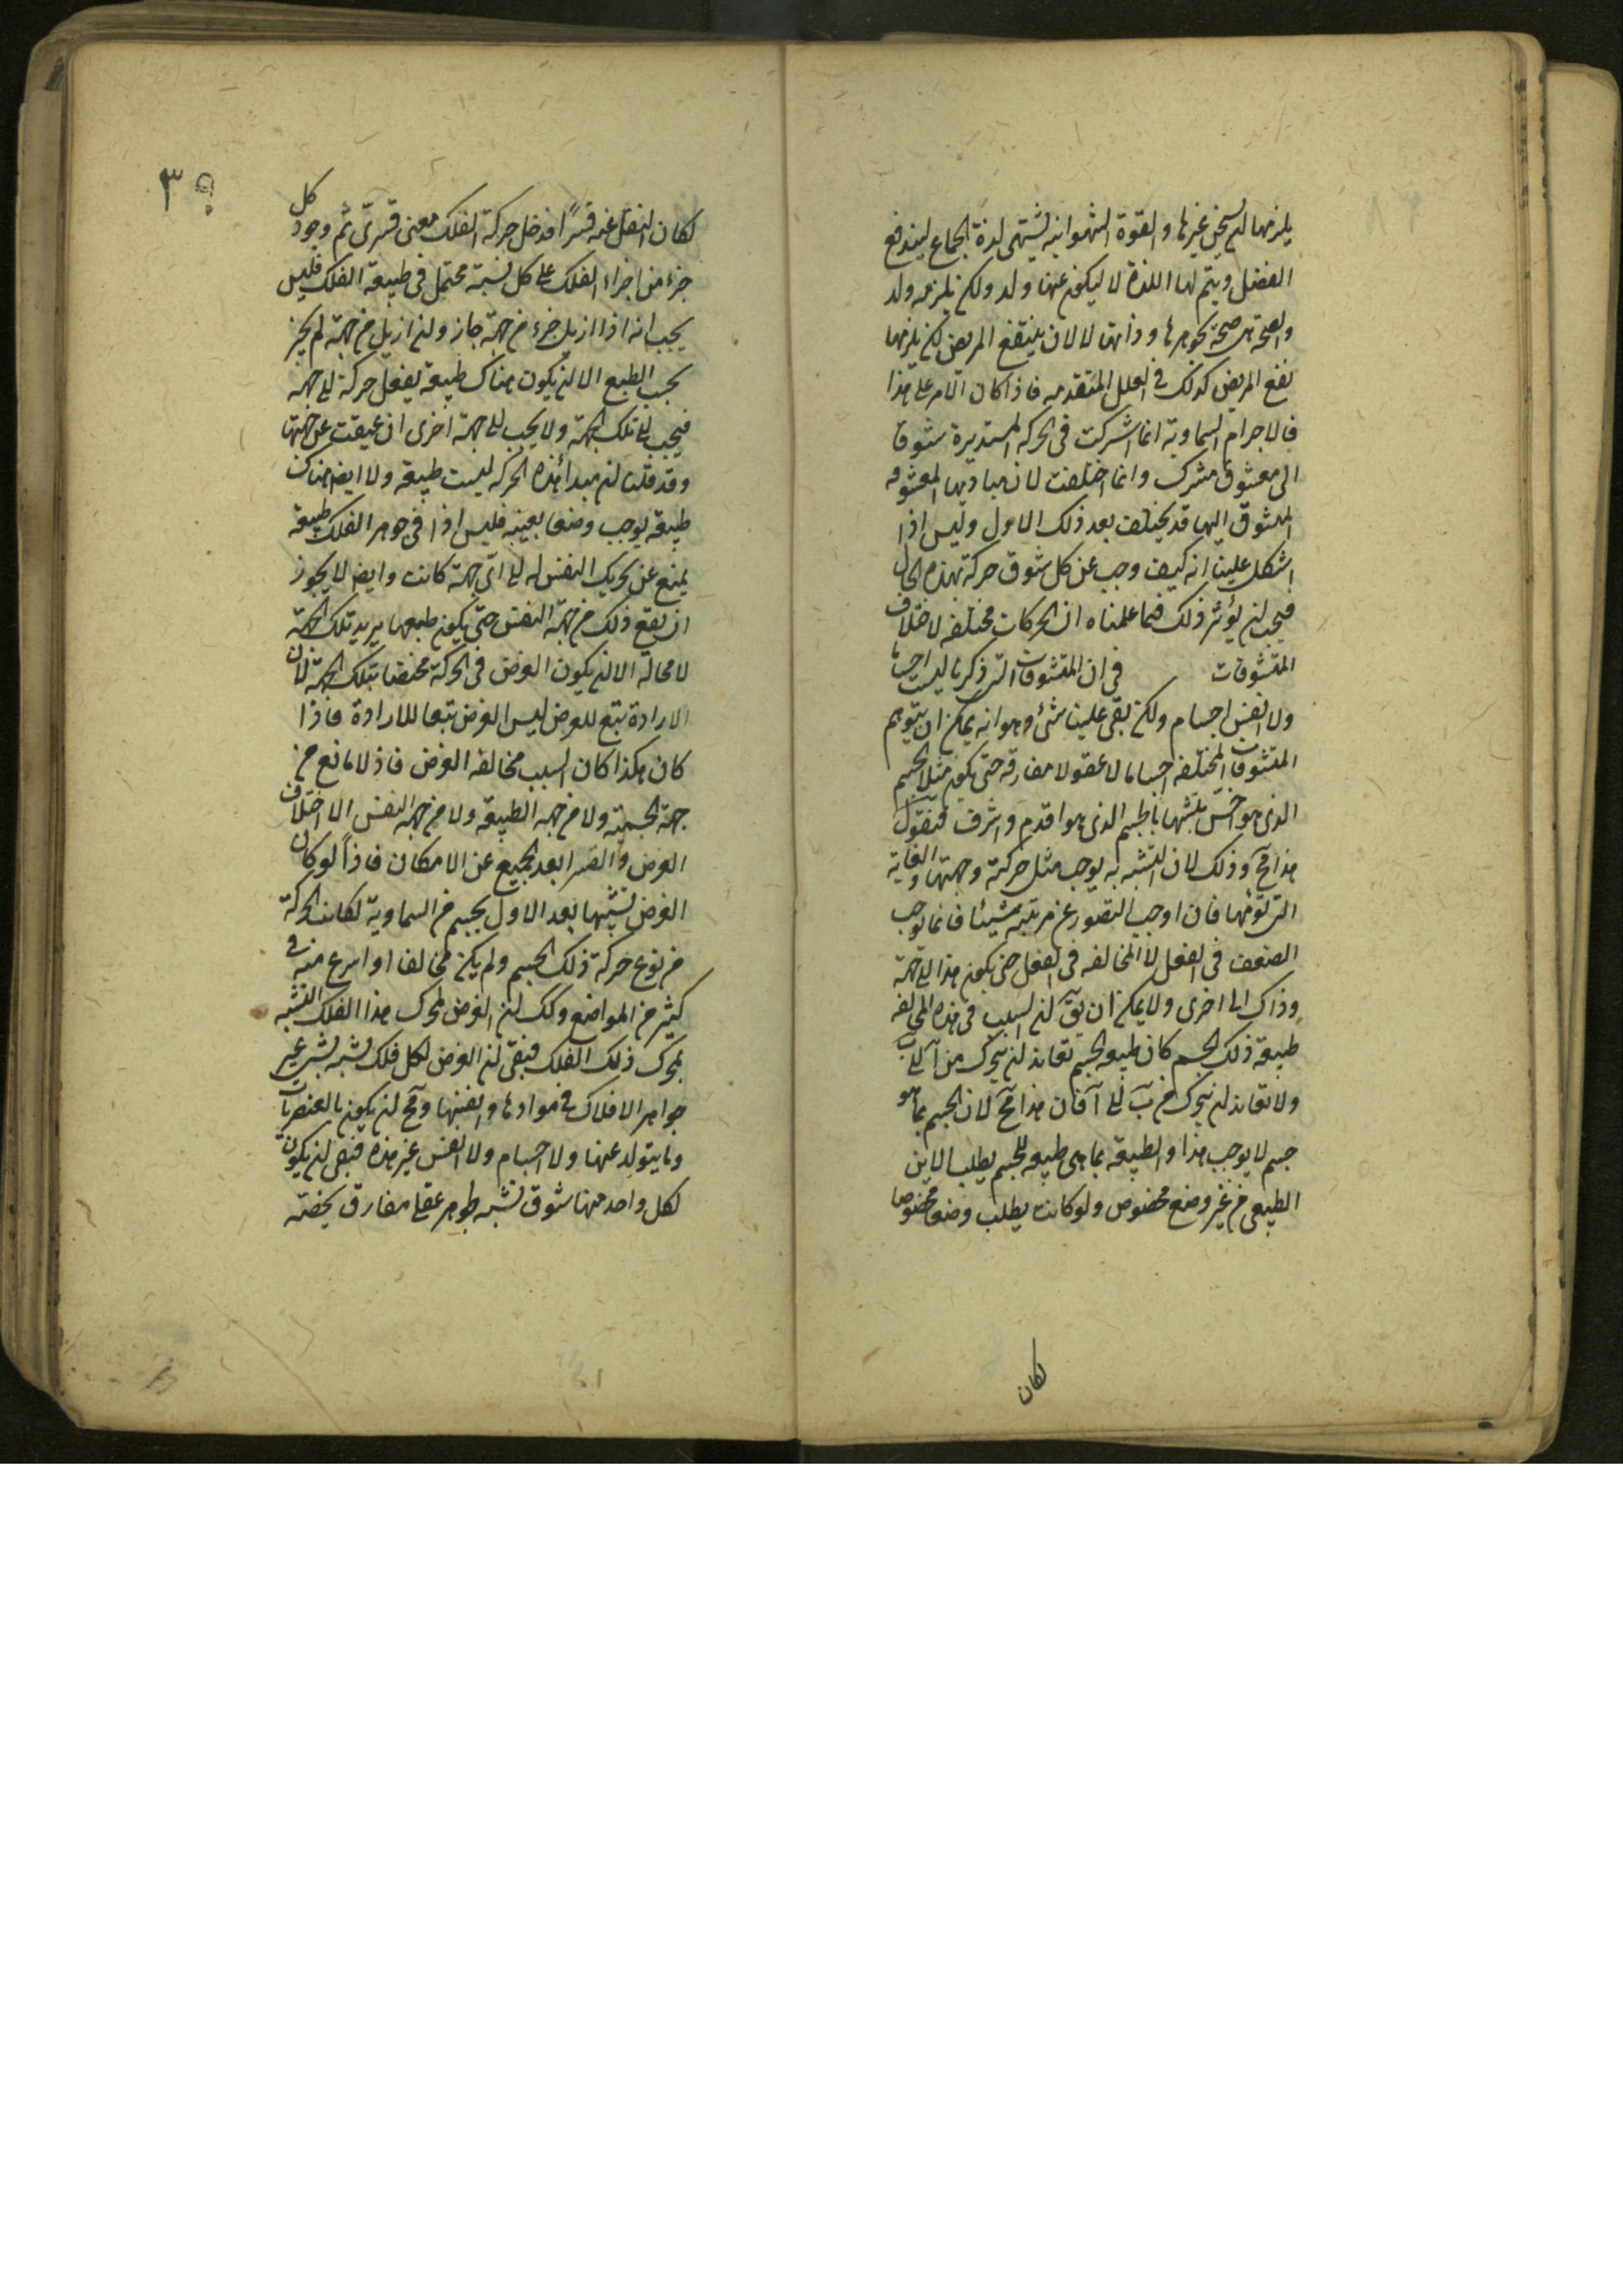 يلزمها ان يسخن غيرها والقوة الشهوانية تشتهى لذة الجماع ليندفع
الفضل ويتم لها اللذة لا ليكون عنها ولد ولكن يلزمه ولد
والصحة هى صحة بجوهرها وذاتها لا لان ينتفع المريض لكن يلزمها
نفع المريض كذلك فى العلل المتقدمه فاذا كان الامر على هذا
فالاجرام السماوية انما اشتركت فى الحركه المستديرة شوقا
الى معشوق مشترك وانما اختلفت لان مباديها المعشوقه
المتشوق اليها قد يختلف بعد ذلك الاول وليس اذا
اشكل علينا انه كيف وجب عن كل شوق حركة بهذه الحال
فيجب ان يؤثر ذلك فيما علمناه ان الحركات مختلفه لاختلاف
المتشوقات فى ان المتشوقات التى ذكرنا ليست اجساما
ولا انفس اجسام ولكن بقى علينا شئ وهو انه يمكن ان يتوهم
المتشوقات المختلفه اجساما لا عقولا مفارقه حتى يكون مثلا الجسم
الذى هو اخس متشبها بالجسم الذى هو اقدم واشرف فنقول
هذا مح وذلك لان التشبه به يوجب مثل حركته وجهتها والغاية
التى تؤمها فان اوجب القصور عن مرتبته شيئا فانما يوجب
الضعف فى الفعل لا المخالفه فى الفعل حتى يكون هذا الى جهة
وذاك الى اخرى ولا يمكن ان يق ان السبب فى هذه المخالفه
طبيعة ذلك الجسم كان طبيعه الجسم تعاند ان يتحرك من آ الى ب
ولا تعاند ان يتحرك من ب الى آ فان هذا مح لان الجسم بما هو
جسم لا يوجب هذا والطبيعه بما هى طبيعه للجسم يطلب الاين
الطبيعى من غير وضع مخصوص ولو كانت يطلب وضعا مخصوصا
لكان
٣
لكان النقل عنه قسرًا فدخل حركة الفلك معنى قسرى ثم وجود كل
جزء من اجزاء الفلك على كل نسبة محتمل فى طبيعة الفلك فليس
يجب انه اذا ازيل جزء من جهة جاز وان ازيل من جهة لم يجز
بحسب الطبع الا ان يكون هناك طبيعة يفعل حركة الى جهه
فيجب الى تلك الجهة ولا يجب الى جهة اخرى ان عيقت عن جهتها
وقد قلنا ان مبدأ هذه الحركه ليست طبيعه ولا ايض هناك
طبيعة يوجب وضعا بعينه فليس اذا فى جوهر الفلك طبيعة
يمنع عن تحريك النفس له الى اى جهة كانت وايض لا يجوز
ان يقع ذلك من جهة النفس حتى يكون طبعها يريد تلك الجهة
لا محالة الا ان يكون الغرض فى الحركة مختصا بتلك الجهة لان
الارادة تتبع للغرض ليس الغرض تبعا للارادة فاذا
كان هكذا كان السبب مخالفه الغرض فاذ لا مانع من
جهة الجسمية ولا من جهه الطبيعه ولا من جهه النفس الا اختلاف
الغرض والقسر ابعد الجميع عن الامكان فاذاً لو كان
الغرض تشبها بعد الاول بجسم من السماوية لكانت الحركة
من نوع حركة ذلك الجسم ولم يكن مخالفا او اسرع منه فى
كثير من المواضع وكك ان الغرض لمحرك هذا الفلك التشبه
بمحرك ذلك الفلك فبقى ان الغرض لكل فلك تشبه بشئ غير
جواهر الافلاك فى موادها وانفسها ومح ان يكون بالعنصريات
وما يتولد عنها ولا اجسام ولا انفس غير هذه فبقى ان يكون
لكل واحد منها شوق تشبه بجوهر عقلى مفارق يخصه